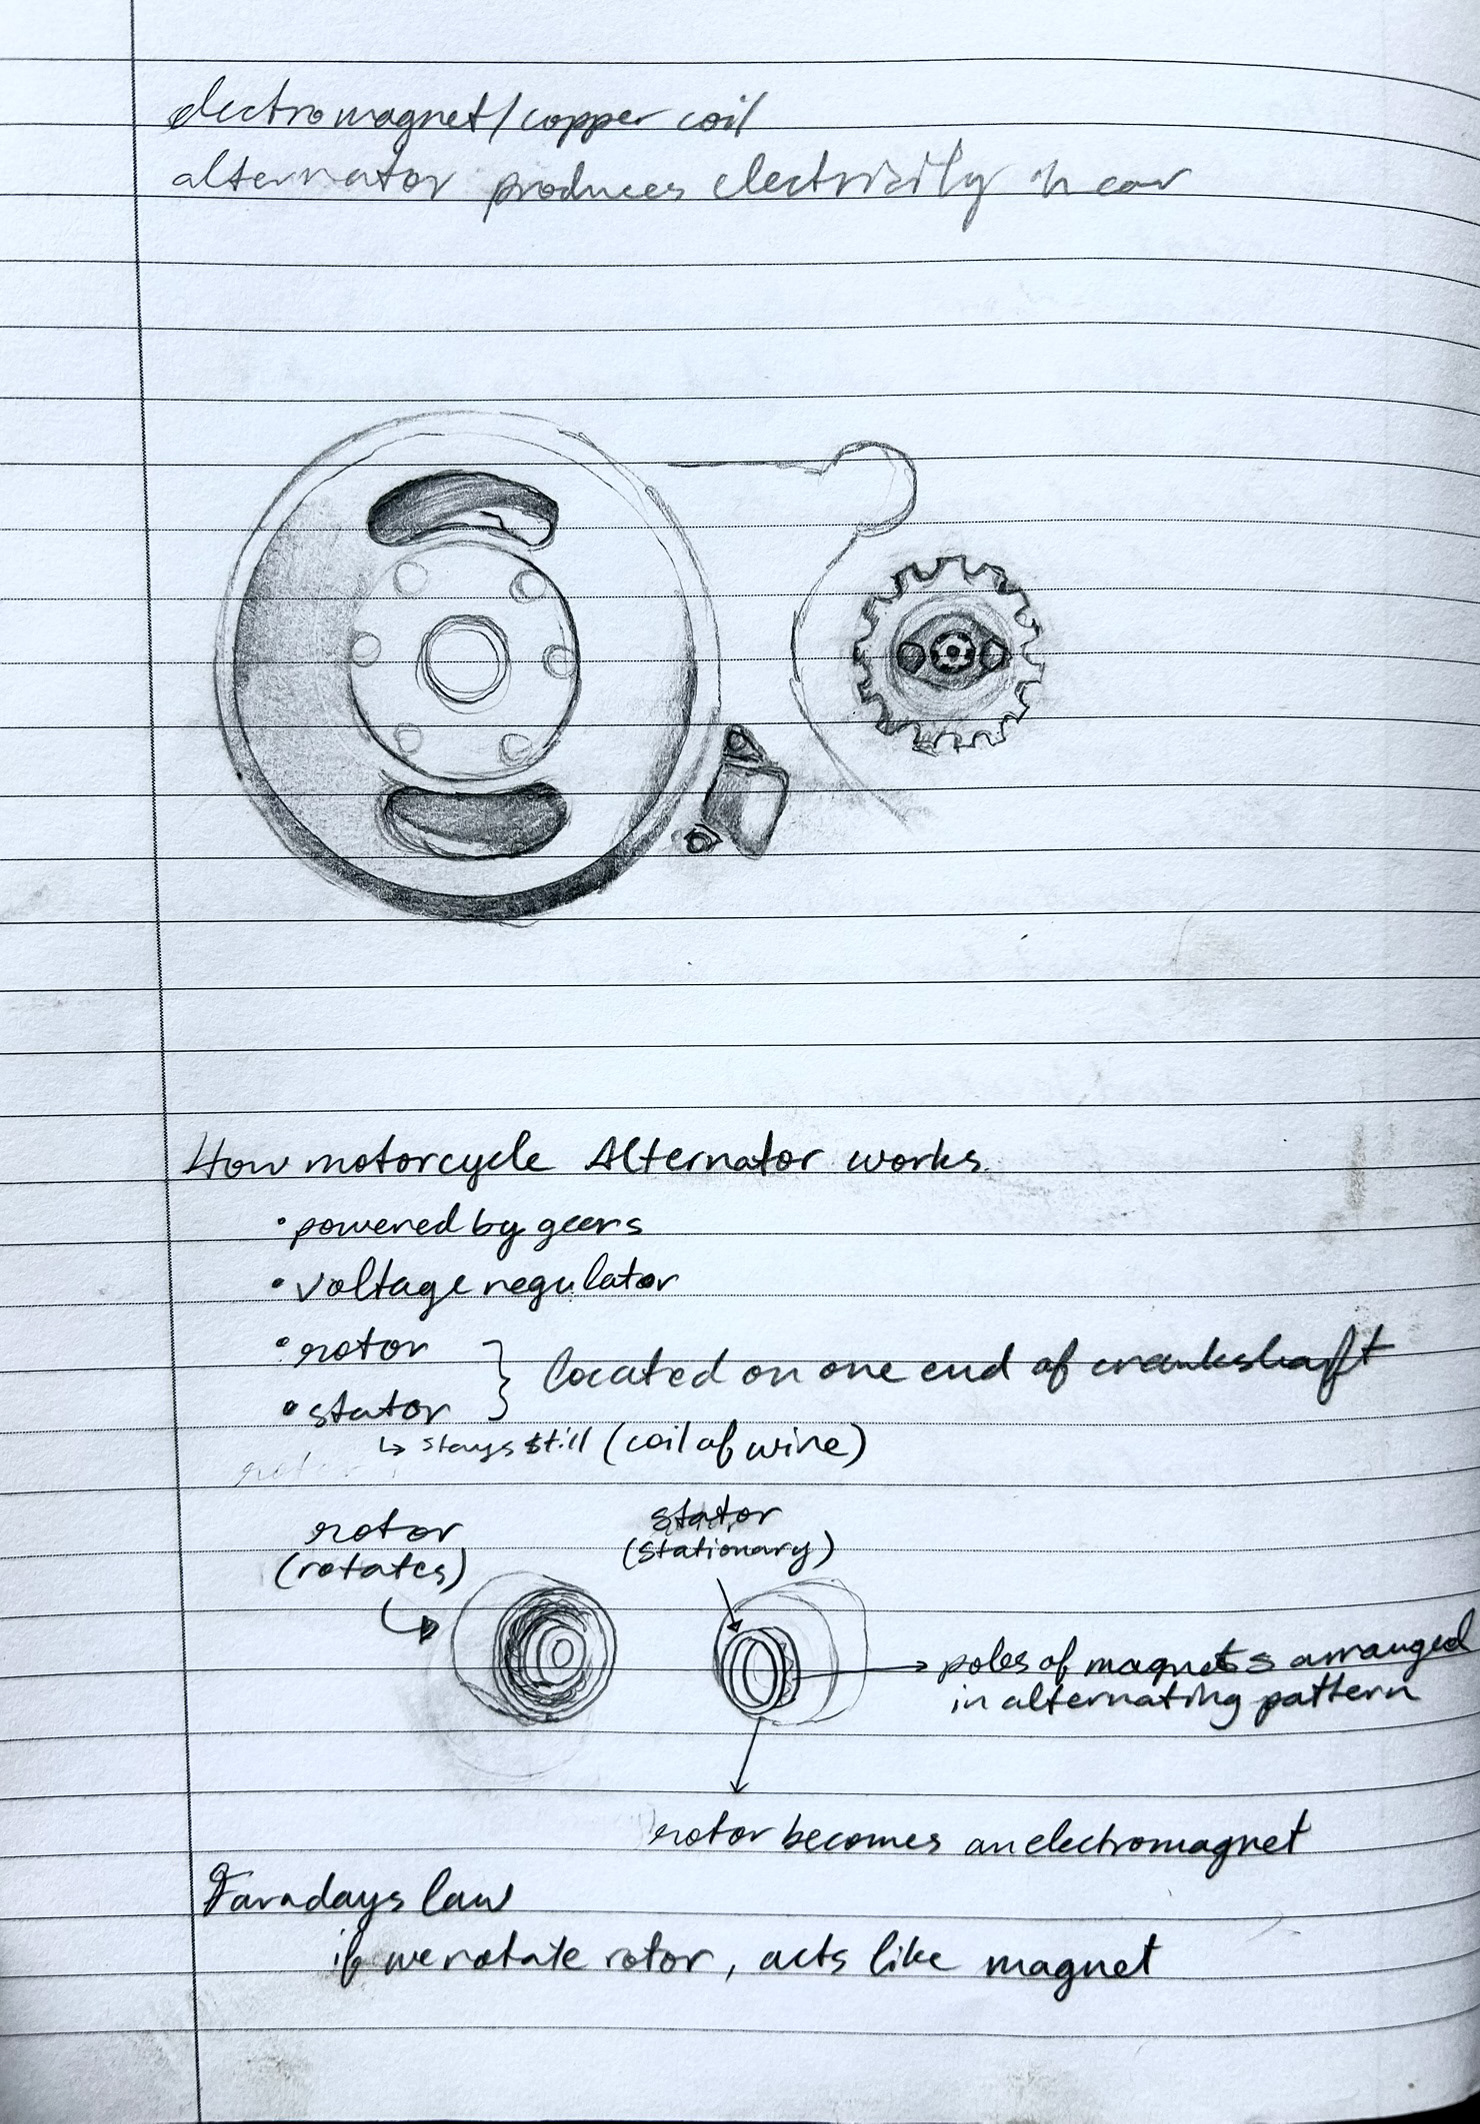 electromagnet/copper coil
alternator produces electricity in car
How motorcycle Alternator works.
• powered by geers
• voltage regulator
• rotor
• stator } located on one end of crankshaft
↳ stays still (coil of wire)
rotor
(rotates)
stator
(stationary)
poles of magnets arranged
in alternating pattern
rotor becomes an electromagnet
Faradays law
if we rotate rotor, acts like magnet